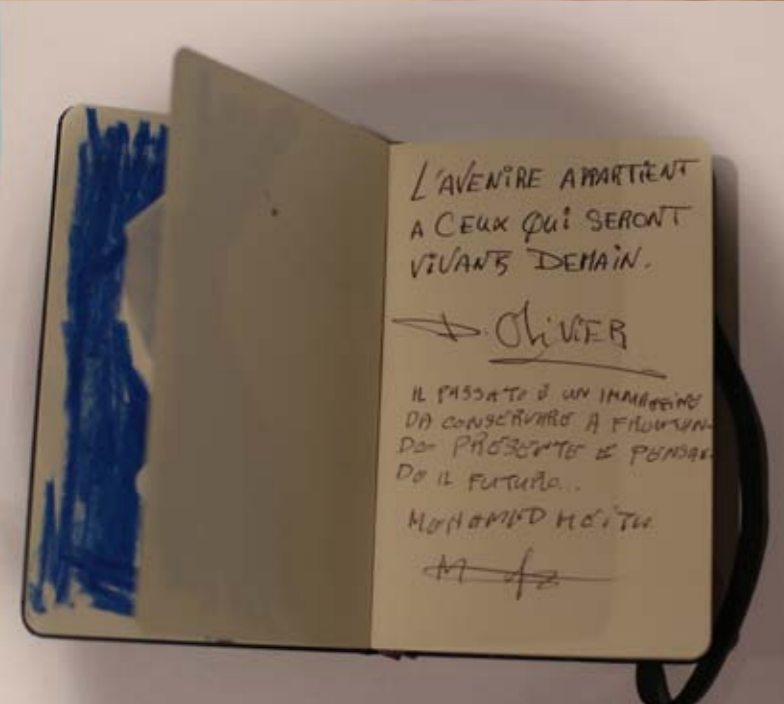 L'AVENIRE APPARTIENT
A CEUX QUI SERONT
VIVANTS DEMAIN.
OLIVIER
IL PASSATO È UN IMMAGGINE
DA CONSERVARE A FRONTAN-
DO PRESENTE E PENSAN-
DO IL FUTURO...
MOHAMED